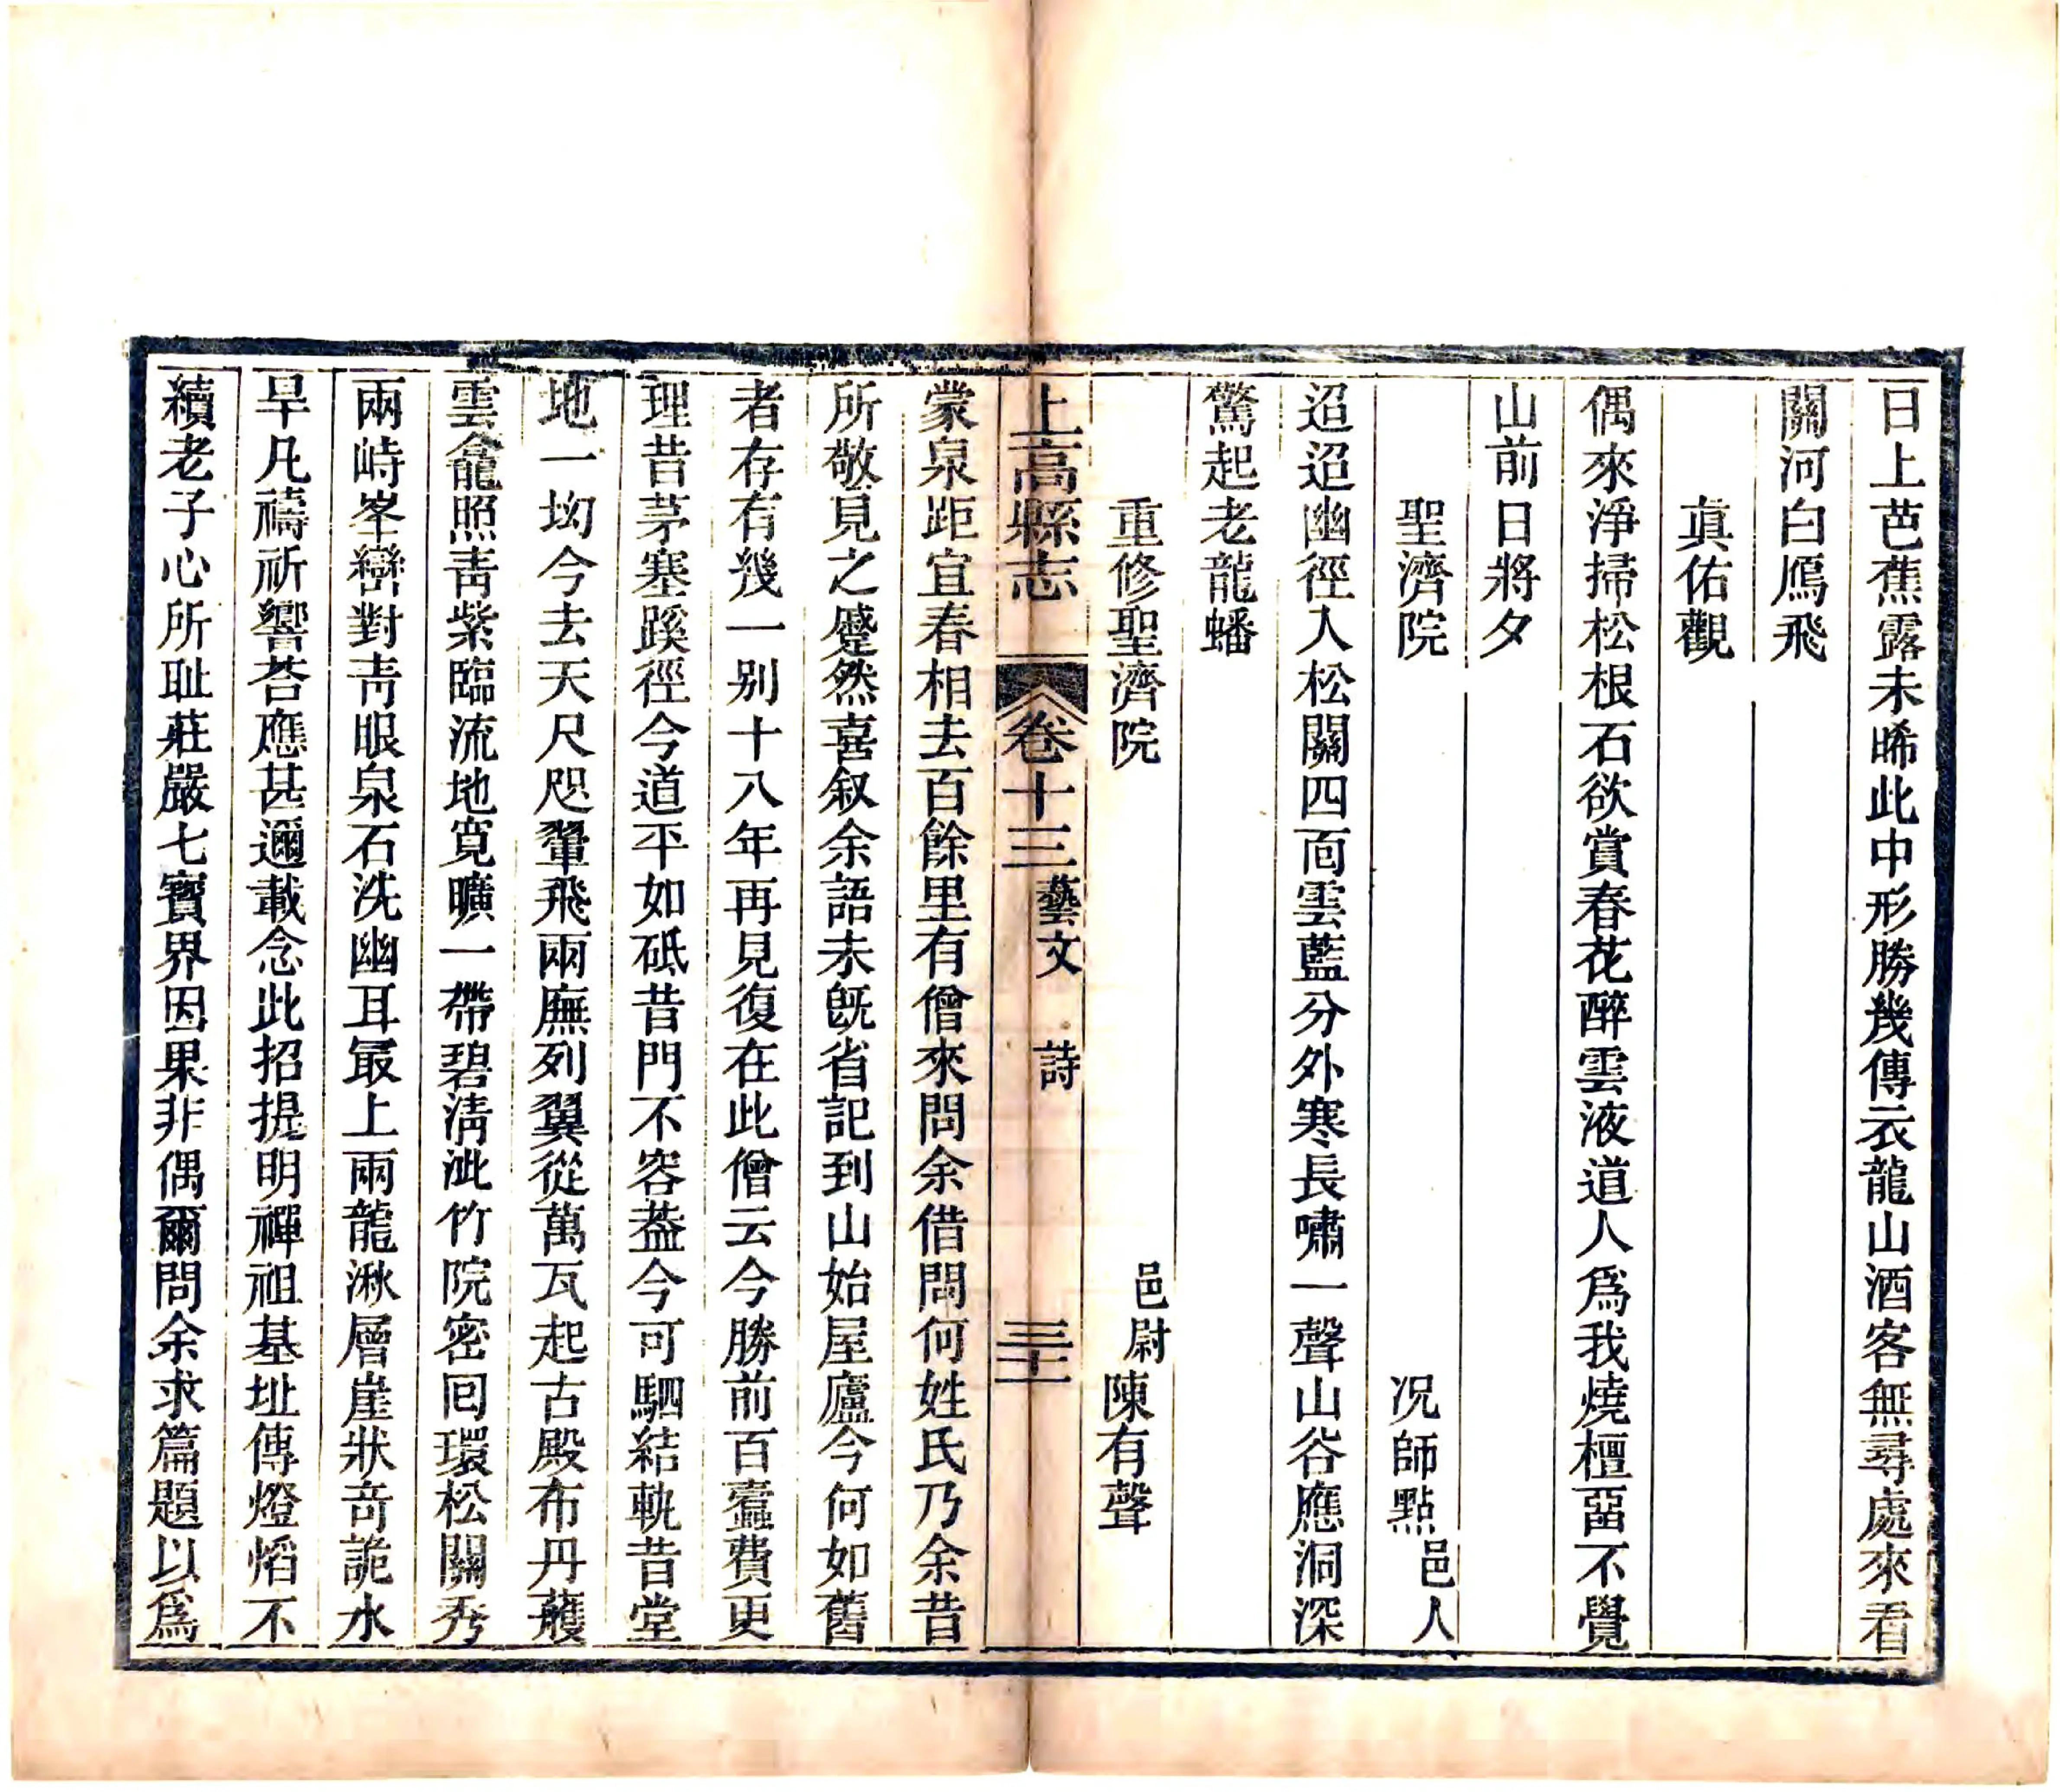 日上芭蕉露未晞此中形勝幾傳衣龍山酒客無尋處來看
關河白鴈飛
眞佑觀
偶來淨掃松根石欲賞春花醉雲液道人爲我燒檀㽞不覺
山前日將夕
聖濟院　况師點邑人
迢迢幽徑人松關四面雲藍分外寒長嘯一聲山谷應洞深
驚起老龍蟠
重修聖濟院　邑尉陳有聲
上高縣志　卷十三藝文　詩　三十一
蒙泉距宜春相去百餘里有僧來問余借問何姓氏乃余昔
所敬見之蹙然喜叙余語未旣省記到山始屋廬今何如舊
者存有幾一別十八年再見復在此僧云今勝前百蠹費更
理昔茅塞蹊徑今道平如砥昔門不容葢今可駟結軌昔堂
地一坳今去天尺咫翬飛兩廡列翼從萬瓦起古殿布丹雘
雲龕照靑紫臨流地寬曠一帶碧淸泚竹院密囘環松關秀
兩峙峯巒對靑眼泉石洗幽耳最上兩龍湫層崖狀奇詭水
旱凡禱祈響荅應甚邇載念此招提明禪祖基址傳燈熖不
續老子心所耻莊嚴七寶界因果非偶爾問余求篇題以爲